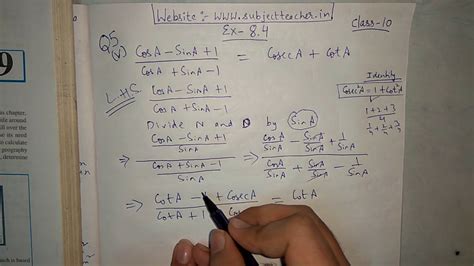 Website :- www.subjectteacher.in
Class-10
Ex- 8.4
Q5
(v) CosA - SinA + 1 / CosA + SinA - 1 = CosecA + CotA
Identity
Cosec²A = 1 + Cot²A
L.H.S CosA - SinA + 1 / CosA + SinA - 1
1+2+3 / 4
1/4 + 2/4 + 3/4
Divide N and D by SinA
⇒ CosA - SinA + 1 / SinA / CosA + SinA - 1 / SinA ⇒ CosA/SinA - SinA/SinA + 1/SinA / CosA/SinA + SinA/SinA - 1/SinA
⇒ CotA - + CosecA / CotA + 1 = CotA
9
this chapter,